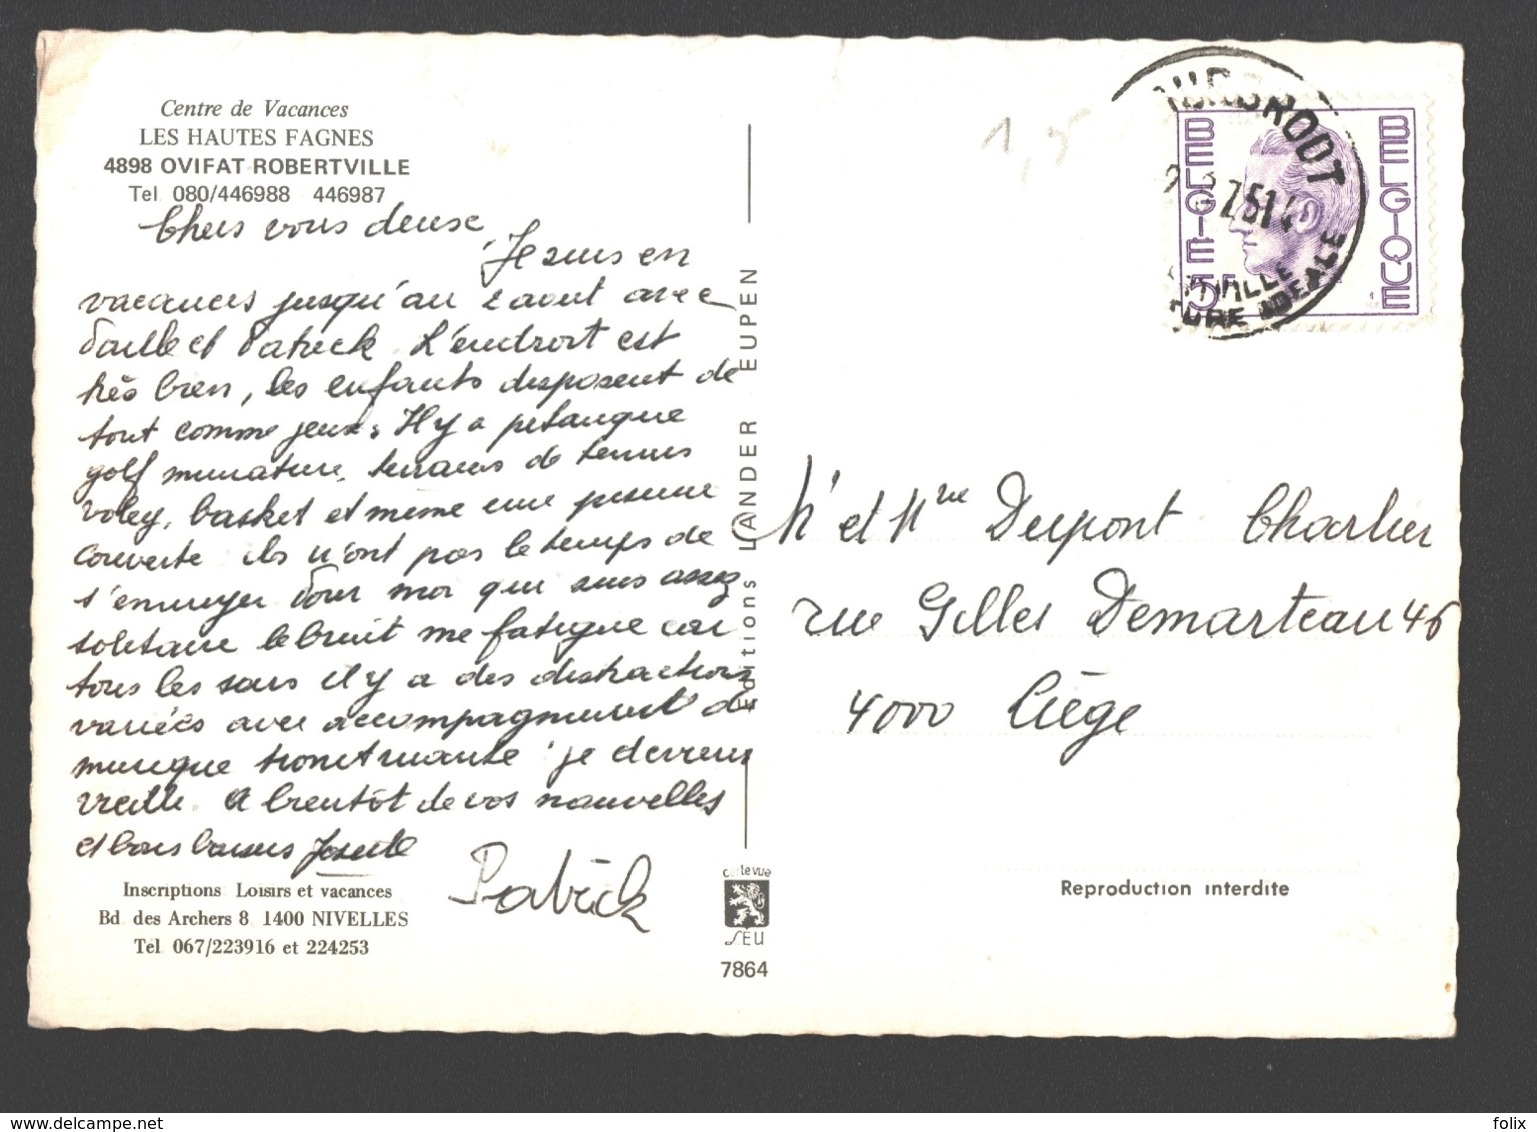 Centre de Vacances
LES HAUTES FAGNES
4898 OVIFAT-ROBERTVILLE
Tel 080/446988 446987
Chers vous deux
Je suis en
vacances jusqu'au 2 aout avec
et Patrick L'endroit est
très bien, les enfants disposent de
tout comme jeux, Il y a pétanque
golf miniature, terrains de tennis
voley, basket et même une piscine
couverte ils n'ont pas le temps de
s'ennuyer Pour moi qui suis assez
solitaire le bruit me fatigue car
tous les soirs il y a des distractions
variées avec accompagnement de
musique je deviens
vieille. A bientôt de vos nouvelles
et bons baisers Josette
Patrick
Inscriptions Loisirs et vacances
Bd des Archers 8 1400 NIVELLES
Tel 067/223916 et 224253
Editions LANDER EUPEN
carte vue
LEU
7864
BELGIE 5F
BELGIQUE
M' et Mme Dupont Charlier
rue Gilles Demarteau 46
4000 Liège
Reproduction interdite
1,5
www.delcampe.net
folix